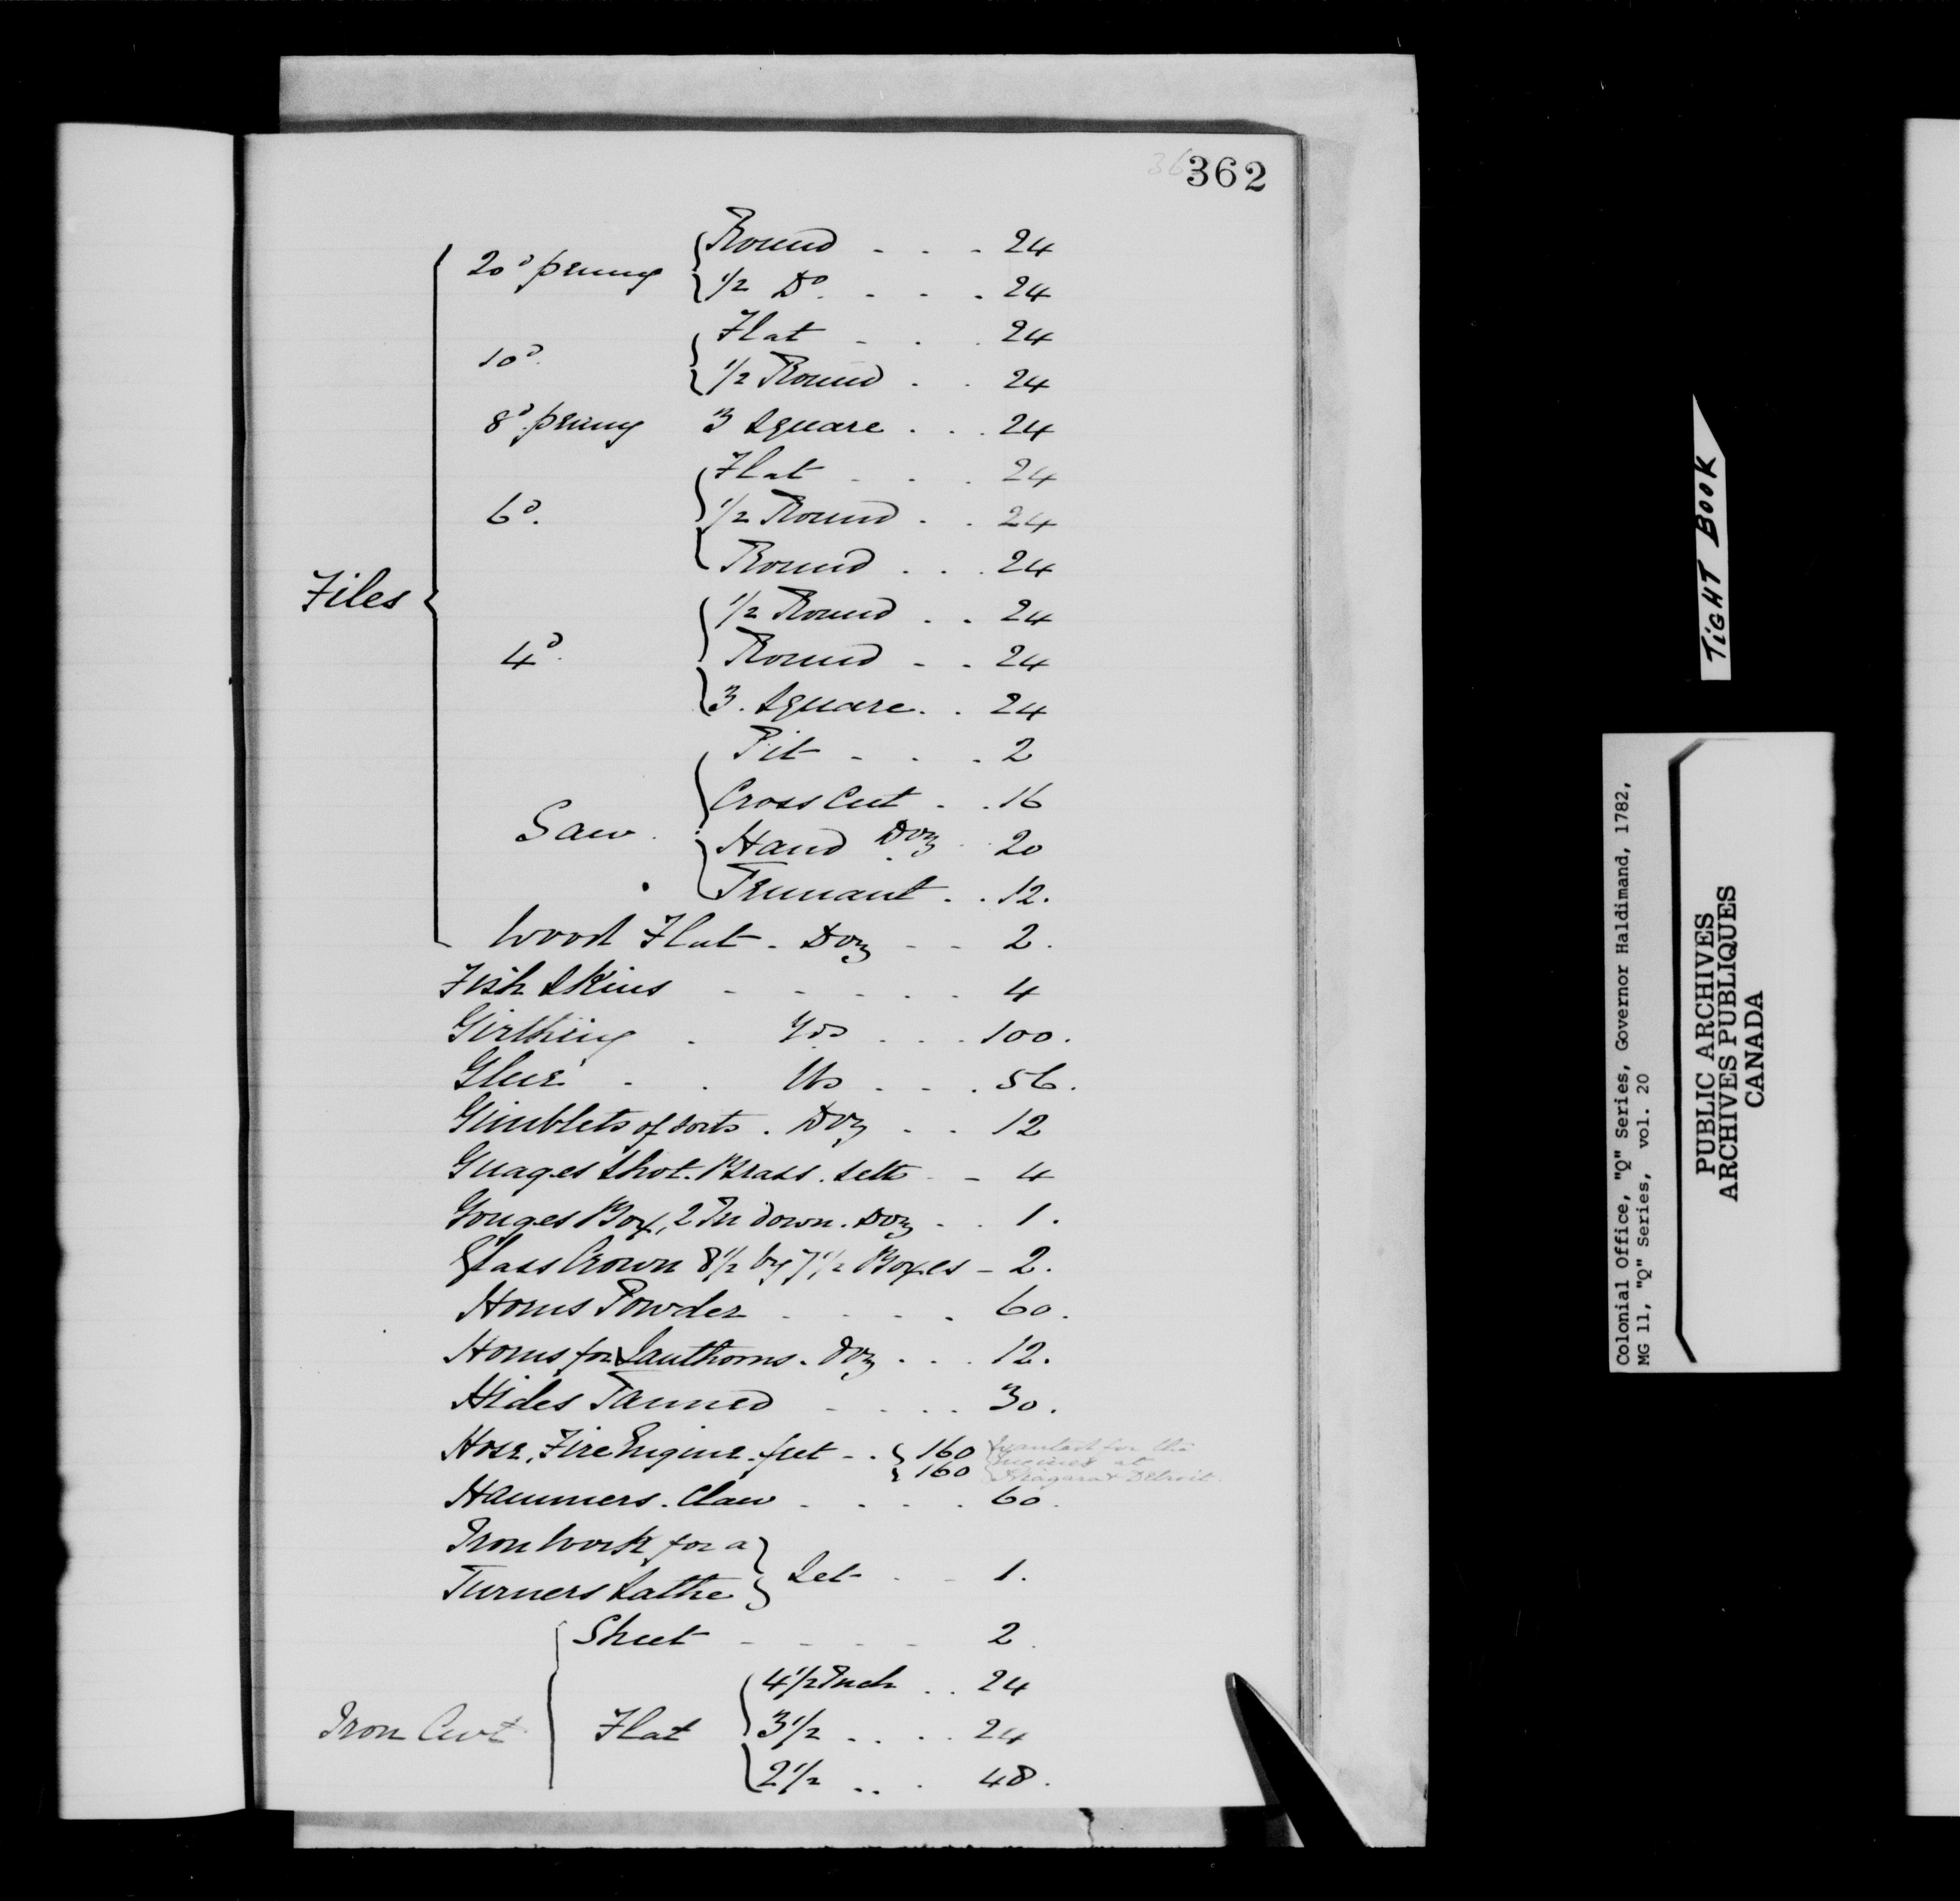 362
20d penny { Round . . . 24
1/2 Do. . . . 24
10d. { Flat . . . 24
1/2 Round . . 24
8d. penny 3 Square . . . 24
6d. { Flat . . . 24
1/2 Round . . 24
Round . . . 24
Files {
4d. { 1/2 Round . . 24
Round . . 24
3. Square . . 24
Saw. { Pit . . . 2
Cross Cut . . 16
Hand Doz . 20
Tennant . . 12.
Wood Flat . Doz . . 2.
Fish Skins . . . . . 4
Girthing . Yds . . . 100.
Glue . . lbs . . . 56.
Gimblets of sorts . Doz . . 12
Guages Shot. Brass. Setts . . 4
Gouges Box, 2 In down. Doz . . 1.
Glass Crown 8 1/2 by 7 1/2 Boxes - 2.
Horns Powder . . . . 60.
Horns for Lanthorns. Doz . . . 12.
Hides Tanned . . . . 30.
Hose, Fire Engine. feet . . { 160 } wanted for the
{ 160 } Engines at
Niagara & Detroit.
Hammers. Claw . . . . 60.
Iron Work for a }
Turners Lathe } Set . . 1.
Sheet . . . . . 2.
Iron Cwt { Flat { 4 1/2 Inch . . 24
3 1/2 . . . . 24
2 1/2 . . . 48.
TIGHT BOOK
Colonial Office, "Q" Series, Governor Haldimand, 1782,
MG 11, "Q" Series, vol. 20
PUBLIC ARCHIVES
ARCHIVES PUBLIQUES
CANADA